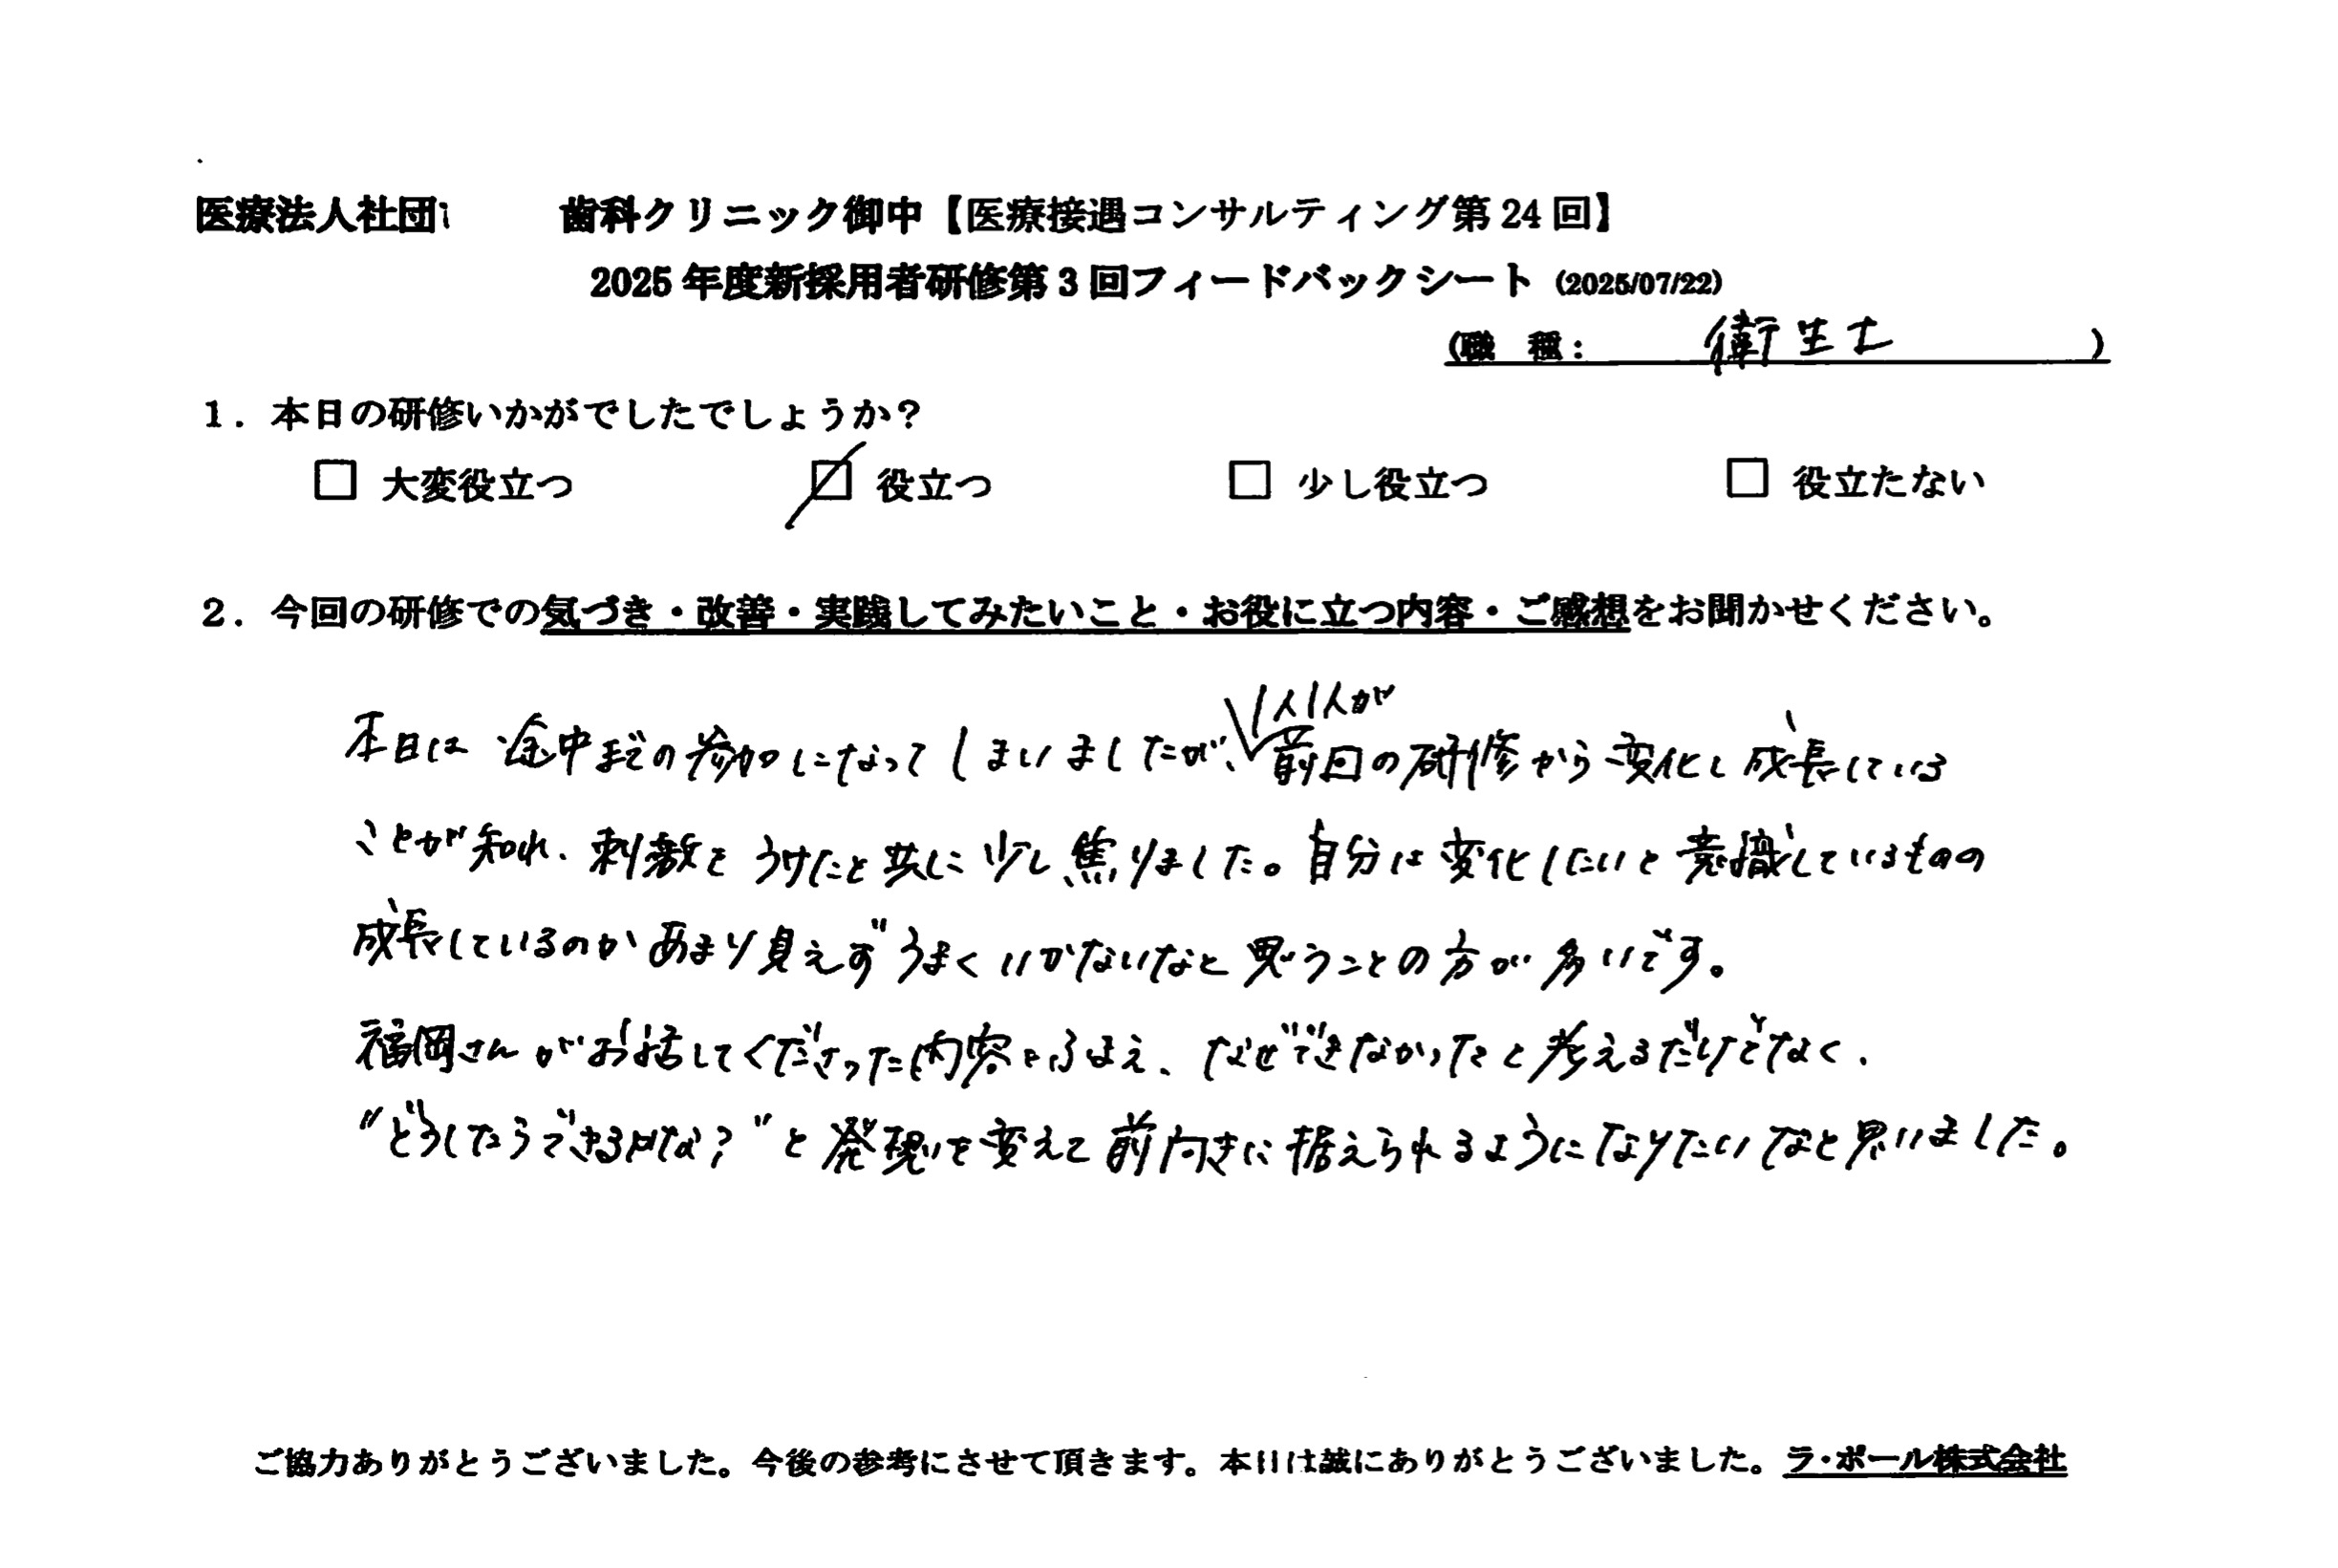 医療法人社団 歯科クリニック御中【医療接遇コンサルティング第24回】
2025年度新採用者研修第3回フィードバックシート (2025/07/22)
(職 種: 衛生士 )
1. 本日の研修いかがでしたでしょうか?
□ 大変役立つ ☑ 役立つ □ 少し役立つ □ 役立たない
2. 今回の研修での気づき・改善・実践してみたいこと・お役に立つ内容・ご感想をお聞かせください。
1人1人が
本日は途中までの参加になってしまいましたが、前回の研修から変化し成長している
ことが知れ、刺激をうけたと共に少し焦りました。自分は変化したいと意識しているものの
成長しているのかあまり見えずうまくいかないなと思うことの方が多いです。
福岡さんがお話してくださった内容をふまえ、なぜできなかったと考えるだけでなく、
"どうしたらできるかな?"と発想を変えて前向きに据えられるようになりたいなと思いました。
ご協力ありがとうございました。今後の参考にさせて頂きます。本日は誠にありがとうございました。ラ・ポール株式会社